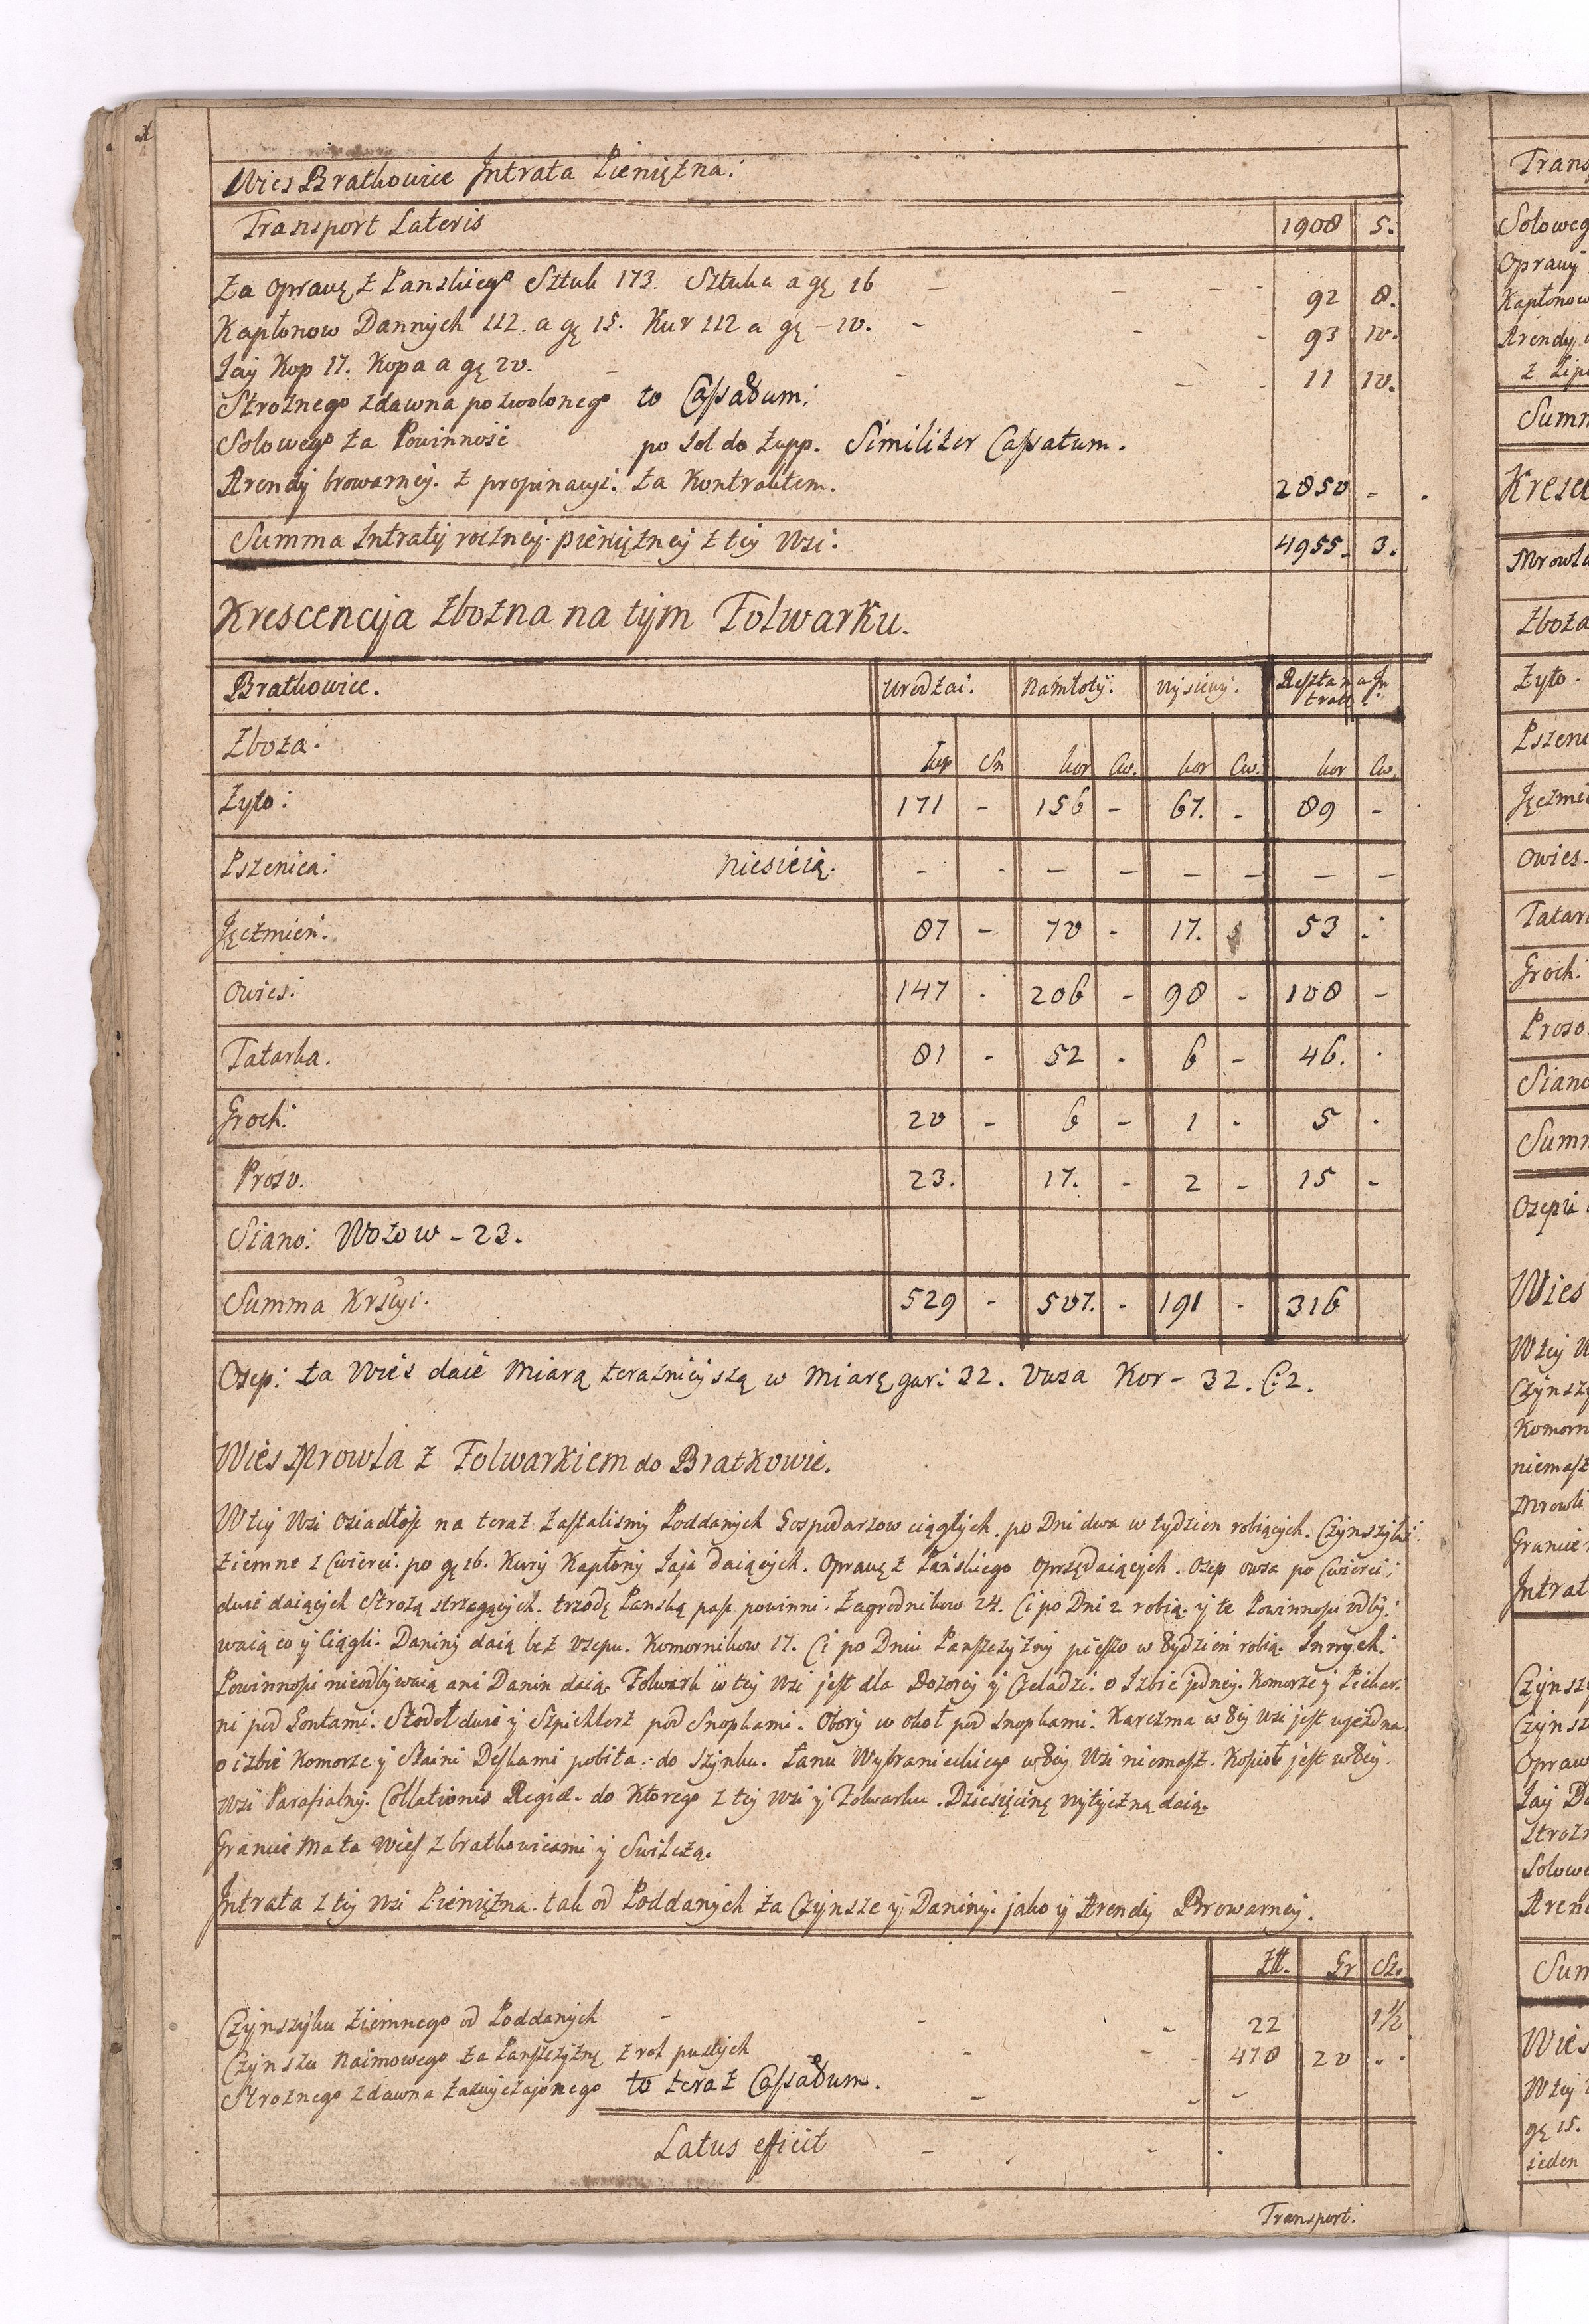 Wies Bratkowice Intrata Pieniężna:
Transport Lateris 1908 5.
Za oprawę z Panskiego Sztuk 173. Sztuka a gę 16 - - - - 92 8.
Kapłonow Dannych 112. a gę 15. Kur 112 a gę - 10. - - - 93 10.
Jay Kop 17. Kopa a gę 20. - - - - 11 10.
Stroznego zdawna pozwolonego to Cassatum;
Solowego za Powinność po sol do Zupp. Similiter Cassatum.
Arendy browarney. z propinacyi. za Kontraktem. 2850 -
Summa Intraty roczney. pieniężney z tey Wsi. 4955. 3.
Krescencyja Zbożna na tym Folwarku.
Bratkowice. Urodzai. Namłoty. Wysiewy. Reszta na In trat:
Zboża: kop Sn kor Cw. kor Cw. kor Cw.
Zyto: 171 - 156 - 67. - 89 -
Pszenica: niesieią. - - - - - - - -
Jęczmien: 87 - 70 - 17. 53 .
Owies: 147 - 206 - 98 - 108 -
Tatarka. 81 - 52 - 6 - 46. .
Groch: 20 - 6 - 1 - 5 .
Proso. 23. 17. - 2 - 15 -
Siano: Wozow - 23.
Summa Krscyi. 529 - 507. - 191 - 316
Osep: ta Wies daie Miarą teraznieyszą w Miarę gar: 32. Owsa Kor - 32. C: 2.
Wies Mrowla z Folwarkiem do Bratkowic.
W tey Wsi osiadłosc na teraz zastalismy Poddanych Gospodarzow ciągłych. po Dni dwa w tydzien robiących. Czynszyki
ziemne z Cwierci. po gę 16. Kury Kapłony Jaja daiących. Oprawę z Pańskiego oprzędaiących. Osep owsa po Cwierci;
dwie daiących Strożą strzegących. trzodę Panską pasc powinni. Zagrodnikow 24. Ci po Dni 2 robią. y te Powinnosci odby:
waią co y Ciągli. Daniny daią bez Osepu. Komornikow 17. Ci po Dniu Panszczyzny pieszo w tydzień robią. Innych
Powinnosci nieodbywaią ani Danin daią. Folwark w tey Wsi jest dla Dozorcy y Czeladzi. o Izbie jedney. Komorze y Piekar:
ni pod Gontami. Stodoł dwie y Szpichlerz pod Snopkami. Obory w okoł pod snopkami. Karczma w tey Wsi jest wjezdna
o izbie Komorze y Staini Deskami pobita. do szynku. Łanu Wybranieckiego w tey Wsi niemasz. Kosciół jest w tey
Wsi Parafialny. Collationis Regiæ. do Ktorego z tey Wsi y Folwarku. Dziesięcinę wytyczną daią.
Granice Ma ta Wies z bratkowicami y Swilczą.
Intrata z tey Wsi Pieniężna. tak od Poddanych za Czynsze y Daniny. jako y Arendy Browarney.
Złł. Gr Szo
Czynszyku ziemnego od Poddanych - - - 22 1½
Czynszu Naimowego za Panszczyznę z rol pustych - - - 478 20 . .
Stroznego zdawna zazwyczajonego to teraz Cassatum. - - -
Latus efficit - - .
Transport: